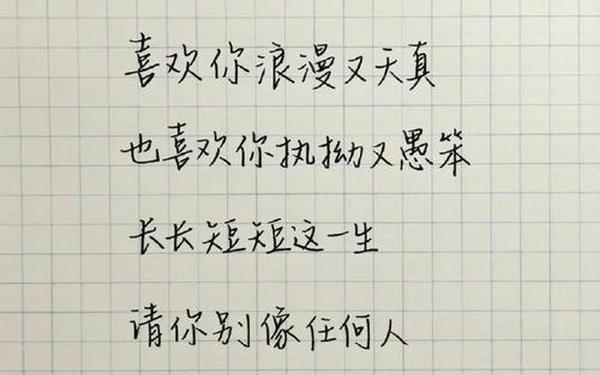 喜欢你浪漫又天真
也喜欢你执拗又愚笨
长长短短这一生
请你别像任何人